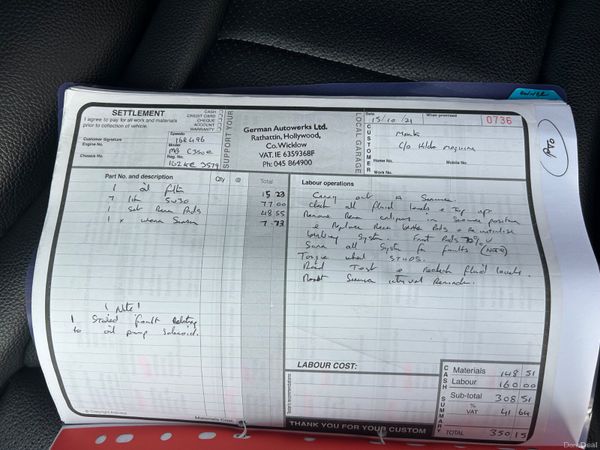 SETTLEMENT
I agree to pay for all work and materials
prior to collection of vehicle.
CASH
CREDIT CARD
CHEQUE
ACCOUNT
WARRANTY
SUPPORT YOUR
LOCAL GARAGE
German Autowerks Ltd.
Rathattin, Hollywood,
Co.Wicklow
VAT. IE 6359368F
Ph: 045 864900
Date
15/10/21
When promised
0736
CUSTOMER
Mark
c/o Hilda Maguire
Home No.
Mobile No.
Work No.
Customer Signature
Engine No.
Chassis No.
Speedo
Model
MB C350e
Reg. No.
162 KE 3579
Part No. and description
Qty
@
Total
1 oil filter 15 23
7 litre 5w30 77.00
1 set Rear Pads 48.55
1 x wear Sensor 7.73
! Note !
1 Stored fault Relating
to oil pump solenoid.
Labour operations
Carry out A Service
Check all fluid levels & Top up
Remove Rear calipers in Service position
& Replace Rear brake Pads &
braking System. Front Pads 70%
Scan all System for faults (Note)
Torque wheel STUDS.
Road Test & recheck fluid levels.
Reset Service interval Reminder.
LABOUR COST:
THANK YOU FOR YOUR CUSTOM
CASH SUMMARY
Materials 148 51
Labour 160 00
Sub-total 308 51
% VAT 41 64
TOTAL 350 15
DoneDeal